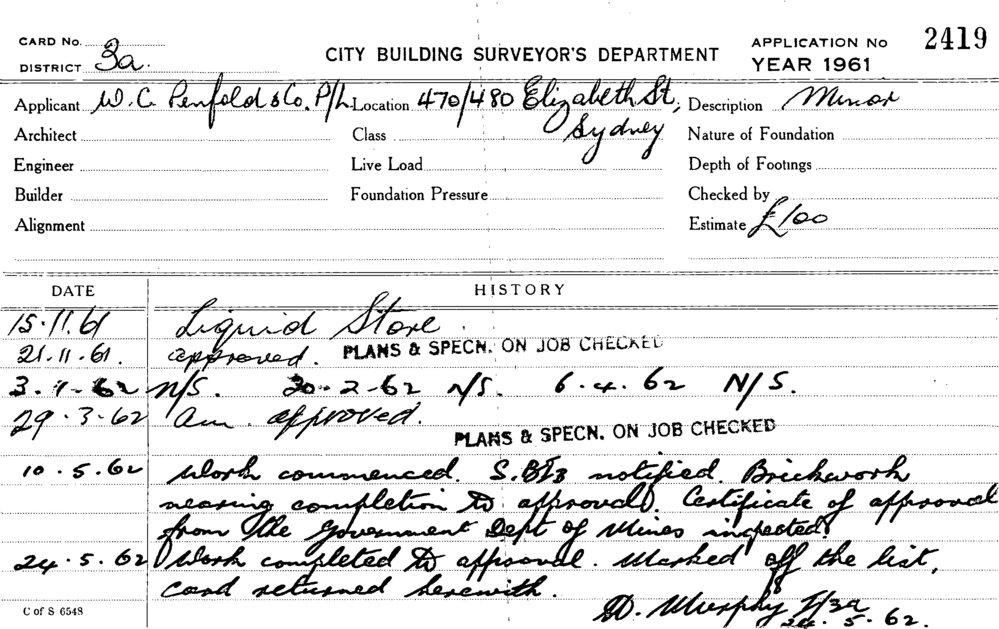 CARD No.
DISTRICT 3a.
CITY BUILDING SURVEYOR'S DEPARTMENT
APPLICATION No 2419
YEAR 1961
Applicant W. C. Penfold & Co. P/L. Location 470/480 Elizabeth St, Sydney Description Minor
Architect Class Nature of Foundation
Engineer Live Load Depth of Footings
Builder Foundation Pressure Checked by
Alignment Estimate £100
DATE HISTORY
15.11.61 Liquid Store.
21.11.61. approved. PLANS & SPECN. ON JOB CHECKED
3.1-62 N/S. 20-2-62 N/S. 6.4.62 N/S.
29.3.62 am. approved.
PLANS & SPECN. ON JOB CHECKED
10.5.62 Work commenced. notified. Brickwork
nearing completion to approval. Certificate of approval
from the Government Dept of Mines inspected.
24.5.62 Work completed to approval. Marked off the list,
card returned herewith.
D. Murphy I/3a
24.5.62.
C of S 6548